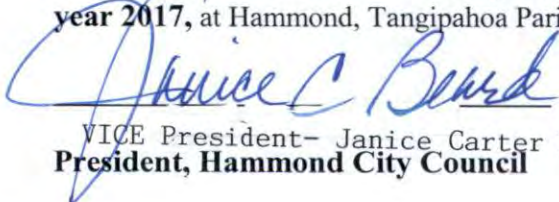 year 2017, at Hammond, Tangipahoa Pari
Janice C Beard
VICE President- Janice Carter
President, Hammond City Council